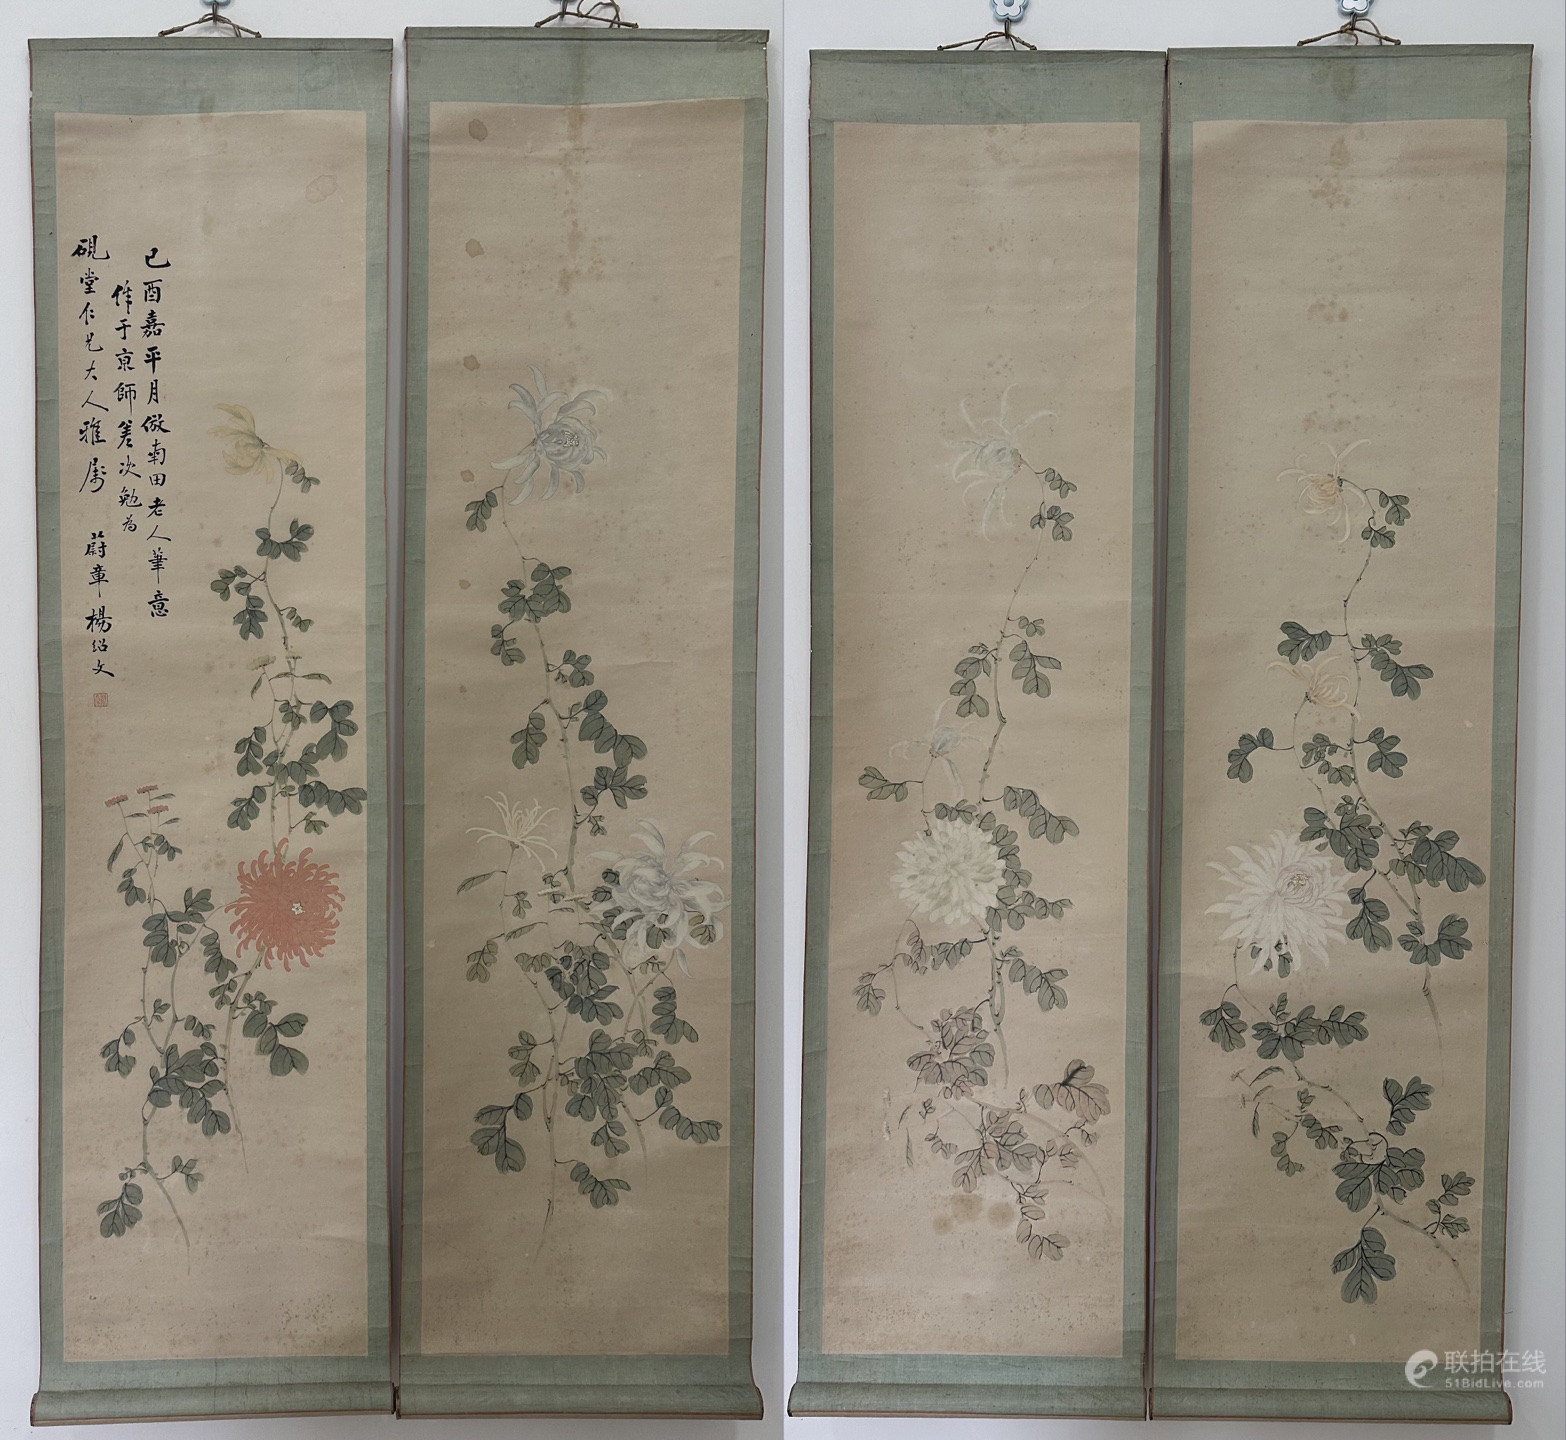 己酉嘉平月倣南田老人華意
作于京師差次勉為
硯堂仁兄大人雅属
蔚章楊紹文
联拍在线
51BidLive.com